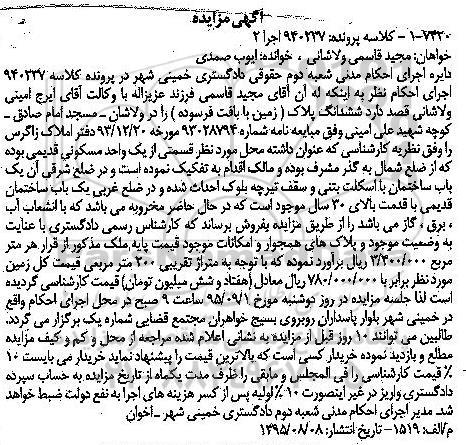 آگهی مزایده
۱-۷۴۲۰ - کلاسه پرونده: ۹۴۰۲۲۷ اجرا ۲
خواهان: مجید قاسمی ولاشانی ، خوانده: ایوب صمدی
دایره اجرای احکام مدنی شعبه دوم حقوقی دادگستری خمینی شهر در پرونده کلاسه ۹۴۰۲۲۷
اجرای احکام نظر به اینکه له آن آقای مجید قاسمی فرزند عزیزاله با وکالت آقای ایرج امینی
ولاشانی قصد دارد ششدانگ پلاک ( زمین با بافت فرسوده ) را در ولاشان ـ مسجد امام صادق ـ
کوچه شهید علی امینی وفق مبایعه نامه شماره ۹۳۰۲۸۷۹۴ مورخه ۹۳/۱۲/۲۰ دفتر املاک زاگرس
را وفق نظریه کارشناسی که عنوان داشته محل مورد نظر قسمتی از یک واحد مسکونی قدیمی بوده
که از ضلع شمال به گذر مشرف بوده و مالک اقدام به تفکیک نموده است و در ضلع شرقی آن یک
باب ساختمان با اسکلت بتنی و سقف تیرچه بلوک احداث شده و در ضلع غربی یک باب ساختمان
قدیمی با قدمت بالای ۳۰ سال موجود است که در حال حاضر مخروبه می باشد که با انشعاب آب
، برق ، گاز می باشد را از طریق مزایده بفروش برساند که کارشناس رسمی دادگستری با عنایت
به وضعیت موجود و پلاک های همجوار و امکانات موجود قیمت پایه ملک مذکور از قرار هر متر
مربع ۳/۴۰۰/۰۰۰ ریال برآورد نموده که با توجه به متراژ تقریبی ۲۰۰ متر مربعی قیمت کل زمین
مورد نظر برابر با ۷۸۰/۰۰۰/۰۰۰ ریال معادل (هفتاد و شش میلیون تومان) قیمت کارشناسی گردیده
است لذا جلسه مزایده در روز دوشنبه مورخ ۹۵/۰۹/۱ ساعت ۹ صبح در محل اجرای احکام واقع
در خمینی شهر بلوار پاسداران روبروی بسیج خواهران مجتمع قضایی شماره یک برگزار می گردد.
طالبین می توانند ۱۰ روز قبل از مزایده به نشانی اعلام شده مراجعه از محل و کم و کیف مزایده
مطلع و بازدید نموده خریدار کسی است که بالاترین قیمت را پیشنهاد نماید خریدار می بایست ۱۰
٪ قیمت کارشناسی را فی المجلس و مابقی را ظرف مدت یکماه از تاریخ مزایده به حساب سپرده
دادگستری واریز در غیر اینصورت ۱۰ ٪ اولیه پس از کسر هزینه های اجرا به نفع دولت ضبط خواهد
شد. مدیر اجرای احکام مدنی شعبه دوم دادگستری خمینی شهر ـ اخوان
م/الف: ۱۵۱۹- تاریخ انتشار: ۱۳۹۵/۰۸/۰۸